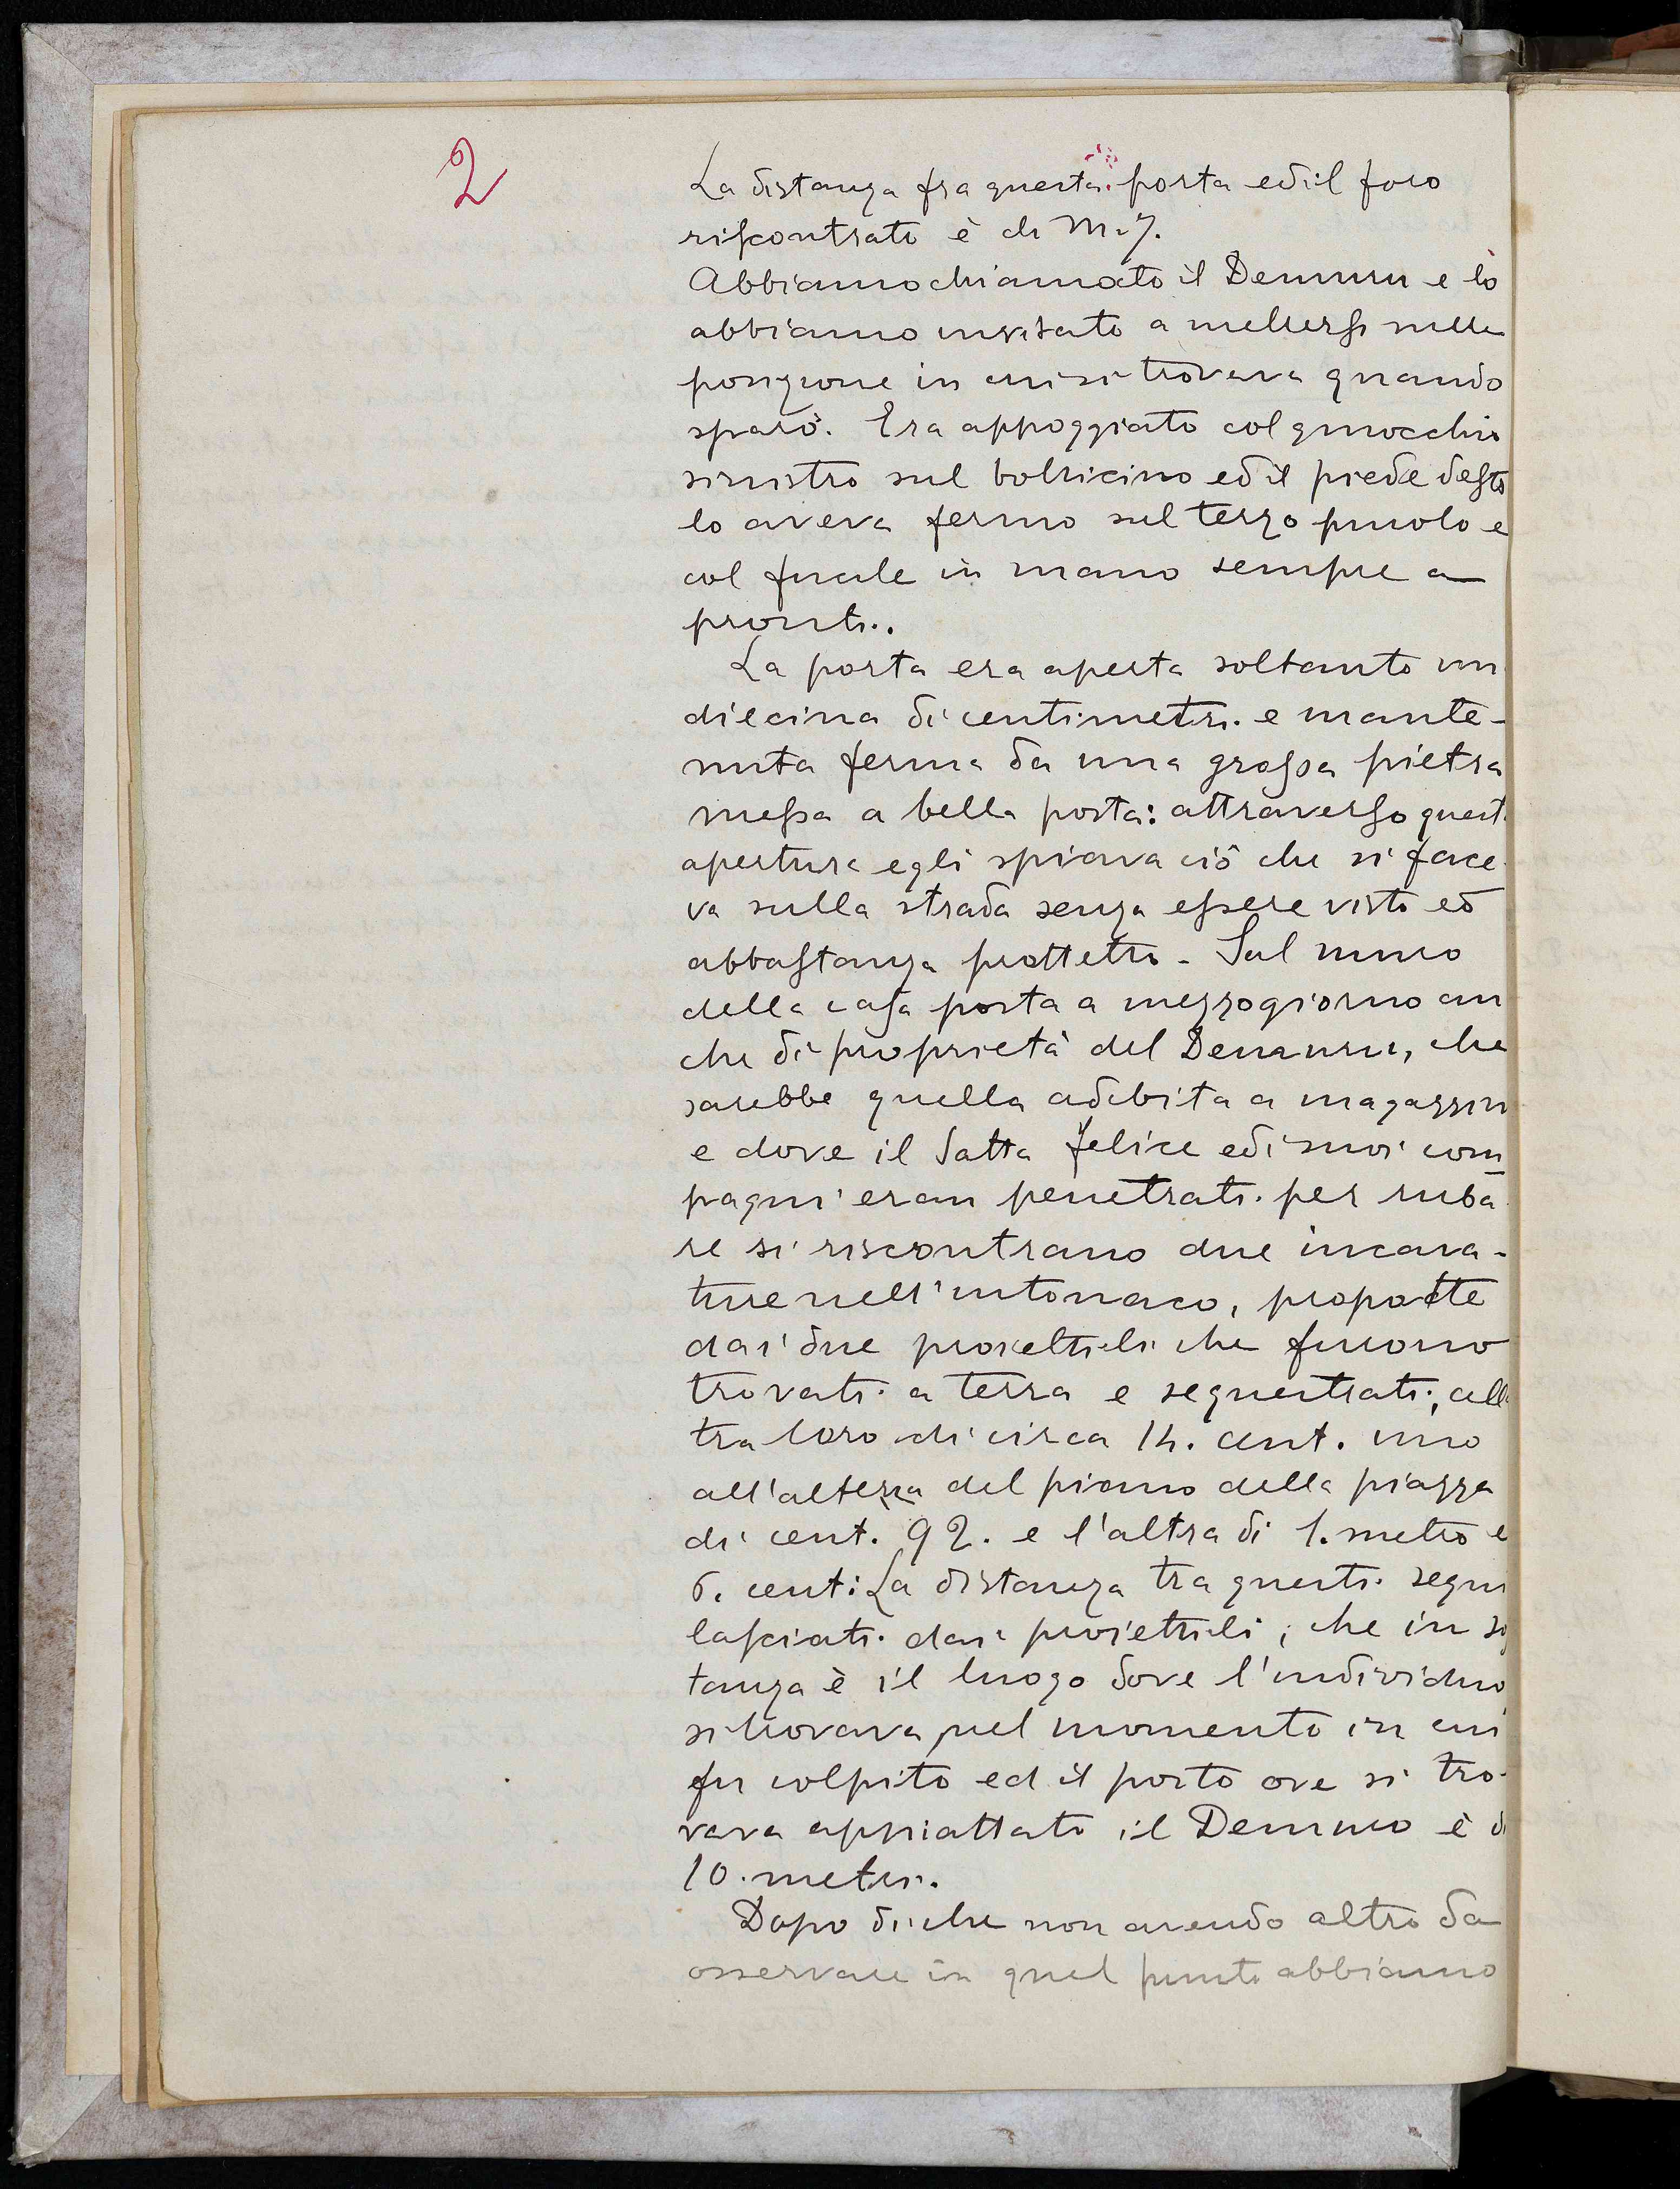 2
La distanza fra questa porta ed il foro
riscontrato è di M. 7.
Abbiamo chiamato il Demuru e lo
abbiamo invitato a mettersi nella
posizione in cui si trovava quando
sparò. Era appoggiato col ginocchio
sinistro sul ed il piede destro
lo aveva fermo sul terzo piuolo e
col fucile in mano sempre a
pronti.
La porta era aperta soltanto un
diecina di centimetri e mante-
nuta ferma da una grossa pietra
messa a bella posta: attraverso quest
apertura egli spiava ciò che si face
va sulla strada senza essere visto ed
abbastanza prottetto. Sul muro
della casa posta a mezzogiorno an
che di proprietà del Demuru, che
sarebbe quella adebita a magazzin
e dove il Satta Felice ed i suoi com
pagni eran penetrati per ruba
re si riscontrano due incava-
ture nell'intonaco, prodotte
dai due proiettili che furono
trovati a terra e sequestrati,
tra loro di circa 14. cent. uno
all'altezza del piano della piazza
di cent. 92. e l'altra di 1. metro e
6. cent: La distanza tra questi segni
lasciati dai proiettili, che in so
tanza è il luogo dove l'individuo
si trovava nel momento in cui
fu colpito ed il posto ove si tro-
vava appiattato il Demuro è di
10. metri.
Dopo di che non avendo altro da
osservare in quel punto abbiamo